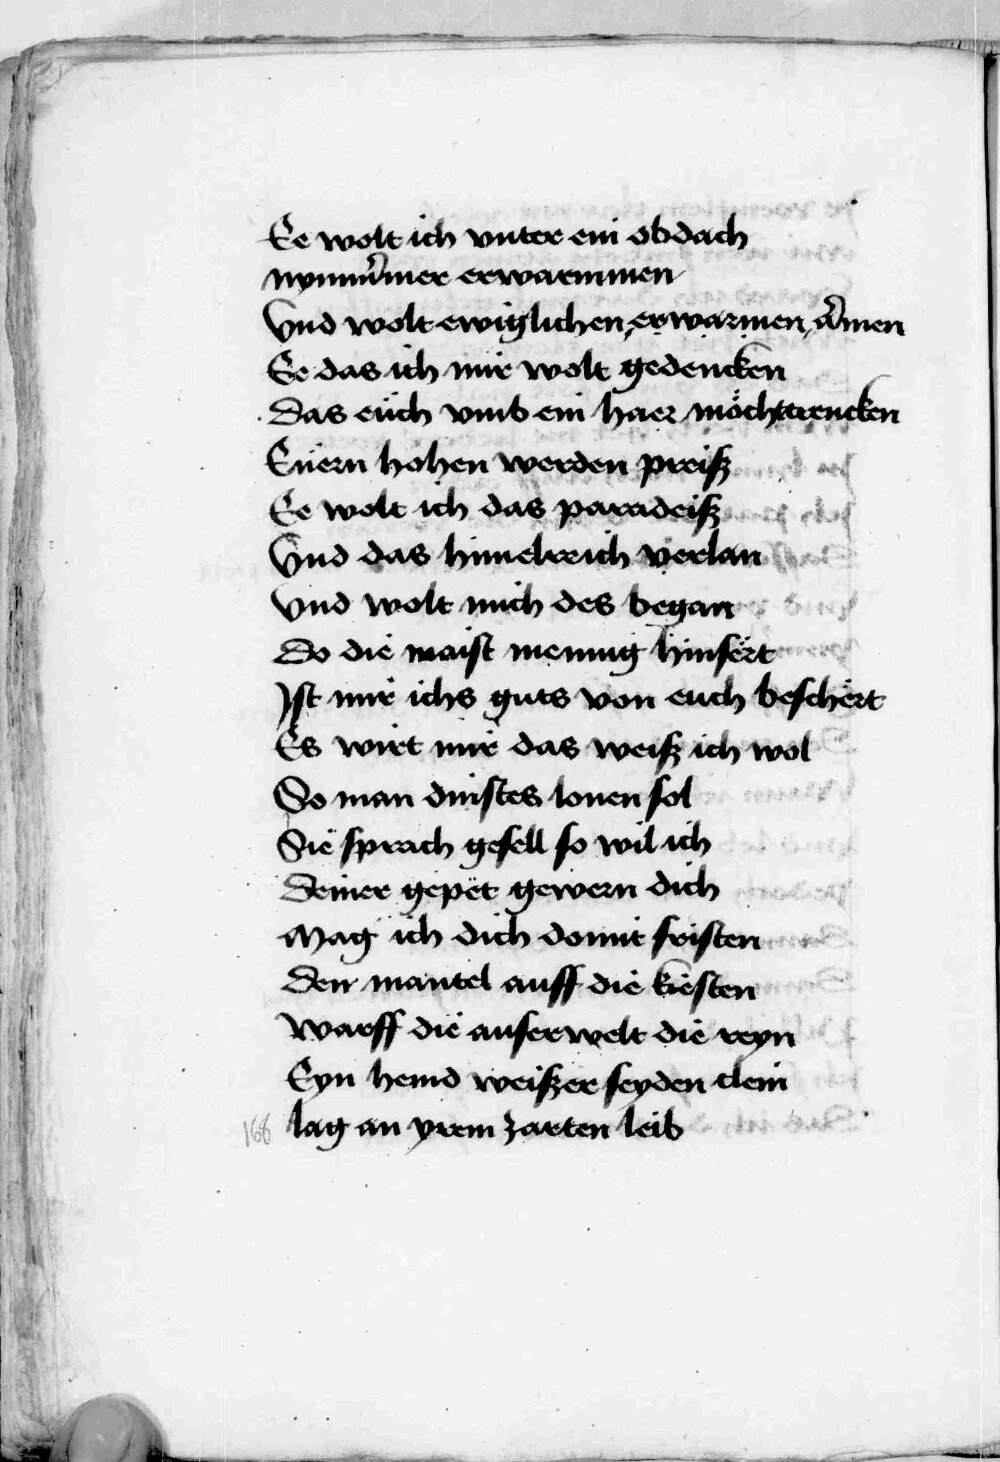 Ee wolt ich vnter ein obdach
nymmer erwarmmen
Vnd wolt ewiglichen erwarmen armen
Ee das ich mir wolt gedencken
das euch vmb ein haer möcht trencken
Eüern hohen werden preisz
Ee wolt ich das paradeisz
Vnd das himelreich verlan
Vnd wolt mich des began
Do die maist mennig hinfërt
Ist mir ichs guts von euch beschërt
Es wirt mir das weisz ich wol
So man dinstes lonen sol
Sie sprach gesell so wil ich
deiner gepët gewern dich
Mag ich dich domit fristen
den mantel auff die kisten
Warff die auserwelt die reyn
Eyn hemd weiszer seyden clein
168 lag an yrem zarten leib